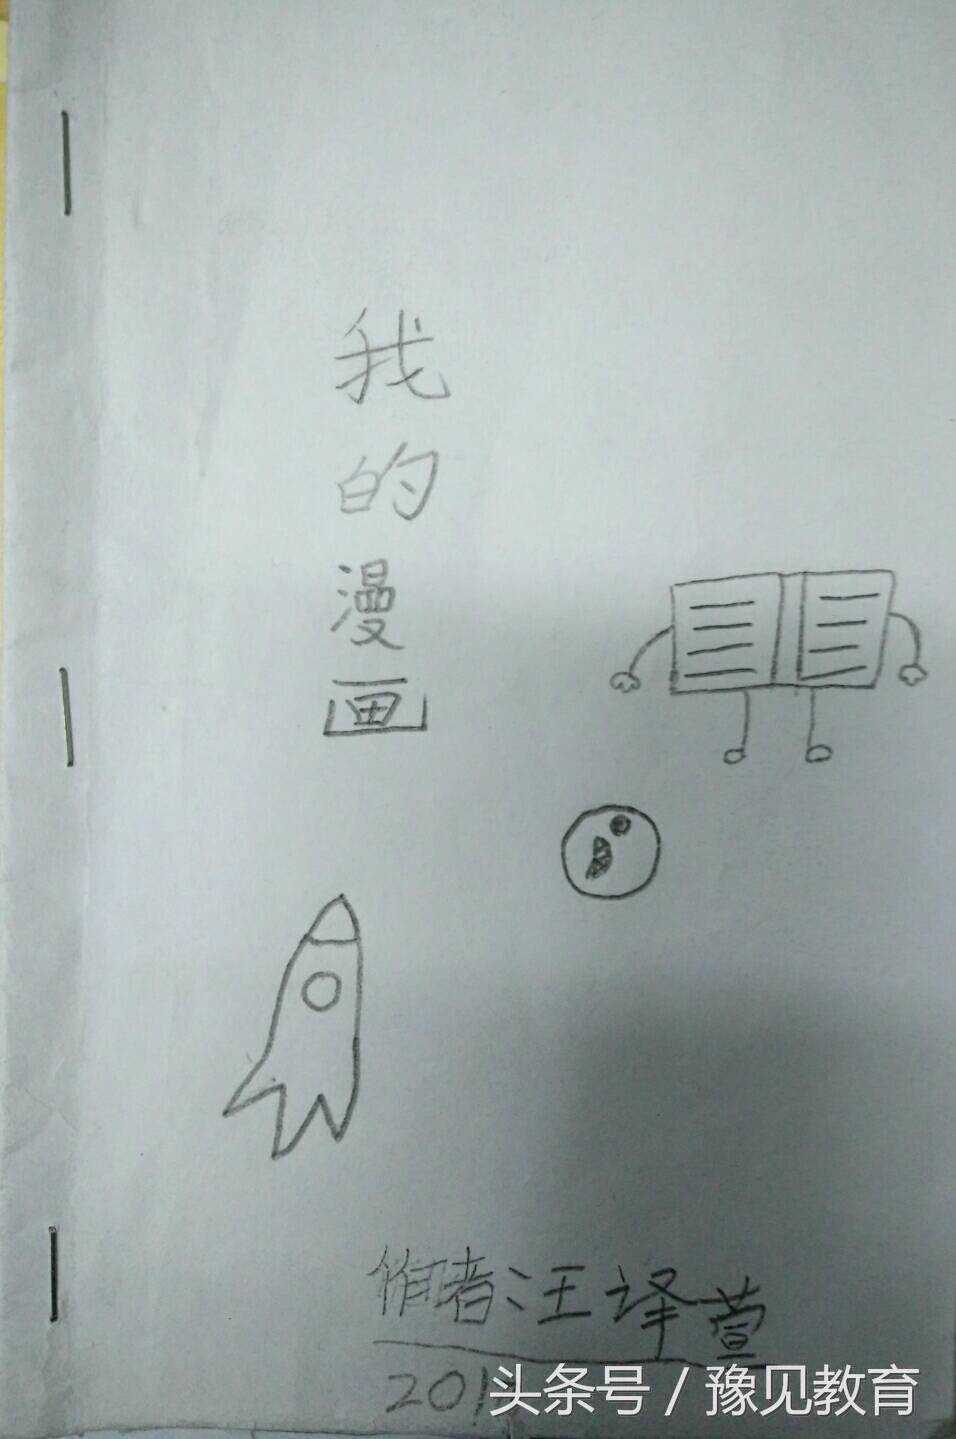 我的漫画
作者汪译萱
201
头条号 / 豫见教育